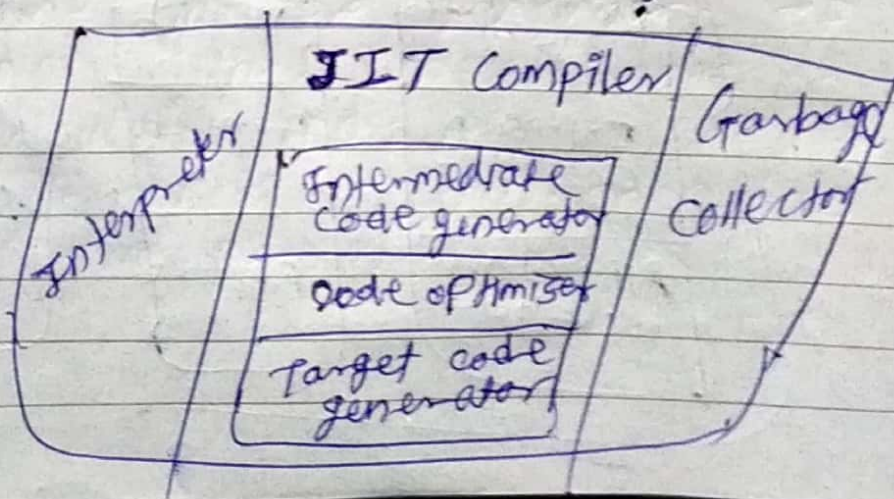 Interpreter
JIT Compiler
Intermediate
code generator
code optimiser
Target code
generator
Garbage
collector